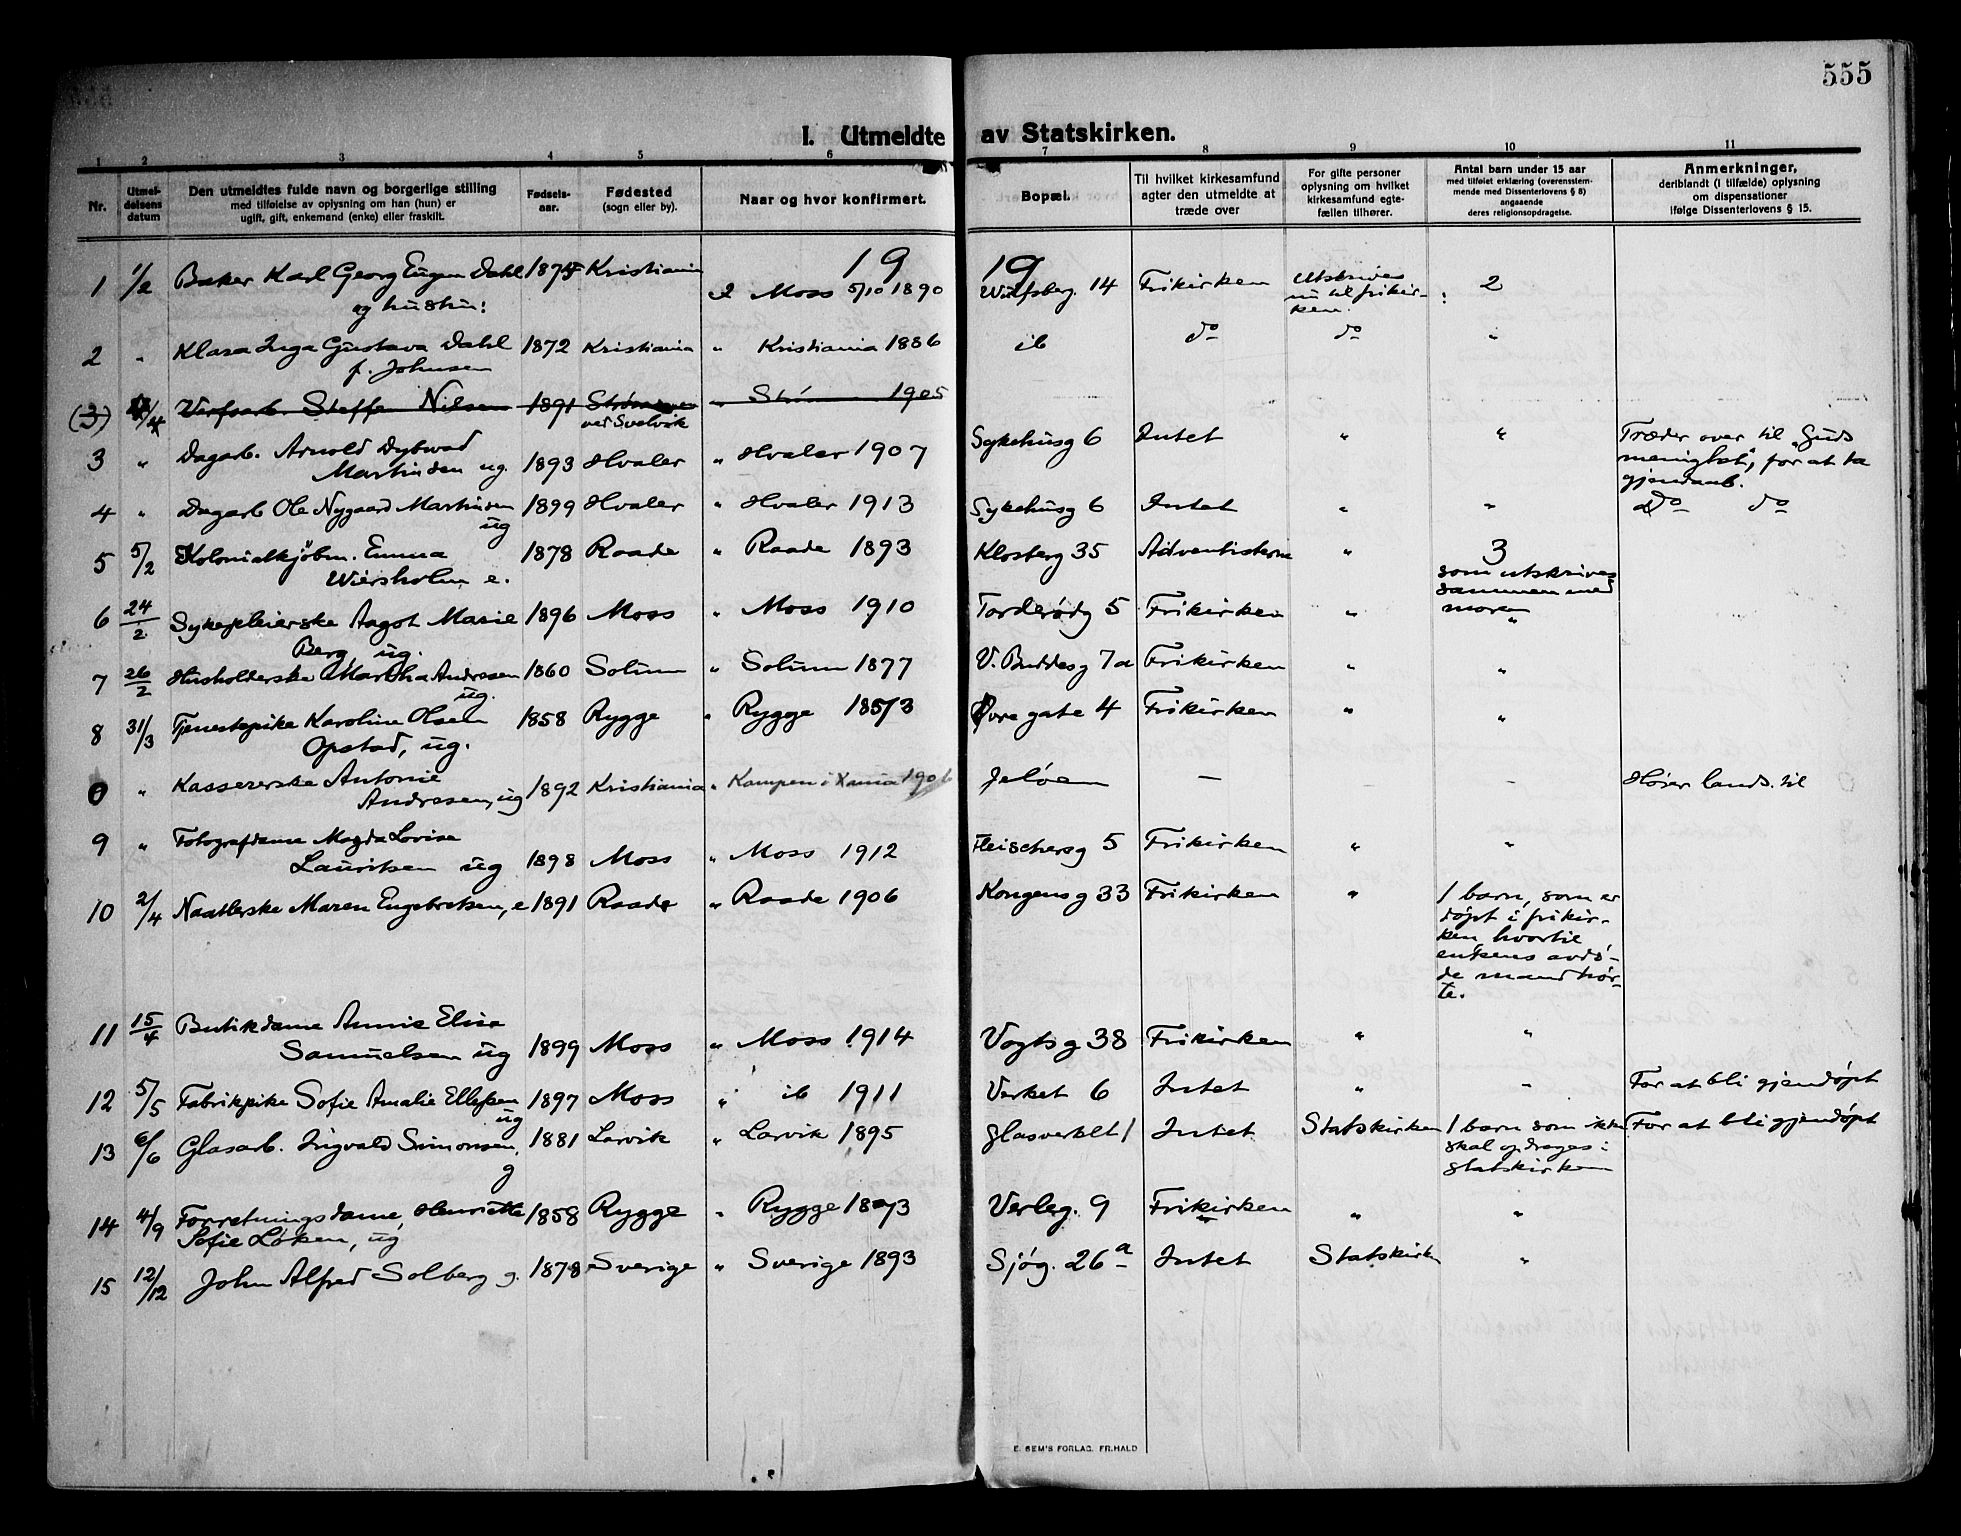 555
I. Utmeldte av Statskirken.
1 2 3 4 5 6 7 8 9 10 11
Nr.
Utmeldelsens datum
Den utmeldtes fulde navn og borgerlige stilling
med tilføielse av oplysning om han (hun) er
ugift, gift, enkemand (enke) eller fraskilt.
Fødselsaar.
Fødested
(sogn eller by).
Naar og hvor konfirmert.
Bopæl.
Til hvilket kirkesamfund
agter den utmeldte at
træde over
For gifte personer
oplysning om hvilket
kirkesamfund egtefællen tilhører.
Antal barn under 15 aar
med tilføiet erklæring (overensstemmende med Dissenterlovens § 8)
angaaende
deres religionsopdragelse.
Anmerkninger,
deriblandt (i tilfælde) oplysning
om dispensationer
ifølge Dissenterlovens § 15.
19 19
1 1/2 Baker Karl Georg Eugen Dahl Kristiania Moss 5/10 1890 14 Frikirken Utskrives 2
og hustru: nu til frikir-
ken.
2 " Klara Inga Gustava Dahl 1872 Kristiania " Kristiania 1886 ib do do "
f. Johnsen
(3) Verfsarb. Steffen Nilsen 1891 " 1905
ved Svelvik
3 " Dagarb. Arnold Dybwad 1893 Hvaler " Hvaler 1907 Sykehusg 6 Intet " " Træder over til "Guds
Martinsen ug. menighet", for at ta
gjendaab.
4 " Dagarb Ole Nygaard Martinsen 1899 Hvaler " Hvaler 1913 Sykehusg 6 Intet " " do do
ug
5 5/2 Kolonialkjøbm. Emma 1878 Raade " Raade 1893 Klosterg 35 Adventisterne " 3
Wiersholm e. som utskrives
sammen med
moren
6 24/2 Sykepleierske Aagot Marie 1896 Moss " Moss 1910 Torderødg 5 Frikirken " "
Berg, ug.
7 26/2 Husholderske Martha Andresen 1860 Solum " Solum 1877 V. Buddesg 7a Frikirken " "
ug.
8 31/3 Tjenestepike Karoline Olsen 1858 Rygge " Rygge 1873 Øvre gate 4 Frikirken " "
Opstad, ug.
0 " Kassererske Antonie 1892 Kristiania " Kampen i Xania Jeløen — – Hører lands. til
Andresen, ug
9 " Fotografdame Magda Lovise 1898 Moss " Moss 1912 Fleischersg 5 Frikirken " "
Lauritsen ug
10 2/4 Naatlerske Maren Engebretsen, e 1891 Raade " Raade 1906 Kongensg 33 Frikirken " 1 barn, som er
døpt i frikir-
ken hvortil
enkens avdø-
de mand hør-
te.
11 15/4 Butikdame Annie Elise 1899 Moss " Moss 1914 Vogtsg 38 Frikirken " "
Samuelsen ug
12 5/5 Fabrikpike Sofie Amalie Ellefsen 1897 Moss " ib 1911 Verket 6 Intet " " For at bli gjendøpt
ug
13 6/6 Glasarb. Ingvald Simonsen, 1881 Larvik " Larvik 1895 Glasverket 1 Intet Statskirken 1 barn som ikke For at bli gjendøpt
g skal opdrages i
statskirken
14 4/9 Forretningsdame, Henriette 1858 Rygge " Rygge 1873 Verleg. 9 Frikirken " "
Sofie Løken, ug
15 12/12 John Alfred Solberg g. 1878 Sverige " Sverige 1893 Sjøg. 26a Intet Statskirken "
E. SEM'S FORLAG, FR.HALD